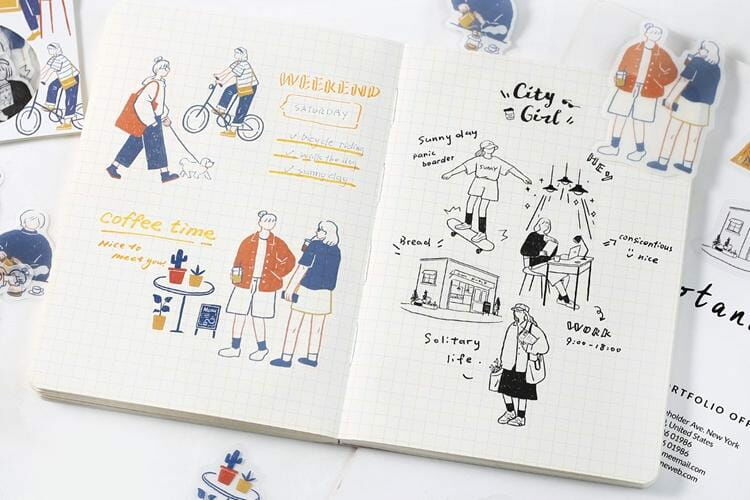 WEEKEND
SATURDAY
✓ bicycle riding
✓ walk the dog
✓ sunny day
Coffee time
Nice to
meet you!
Menu
City
Girl
Sunny day
panic
boarder
SUNNY
HEY
Bread
conscientious
nice
WORK
9:00-18:00
Solitary
life.
ORTFOLIO OFF
holder Ave. New York
United States
6 01986
6 01986
meemail.com
neweb.com